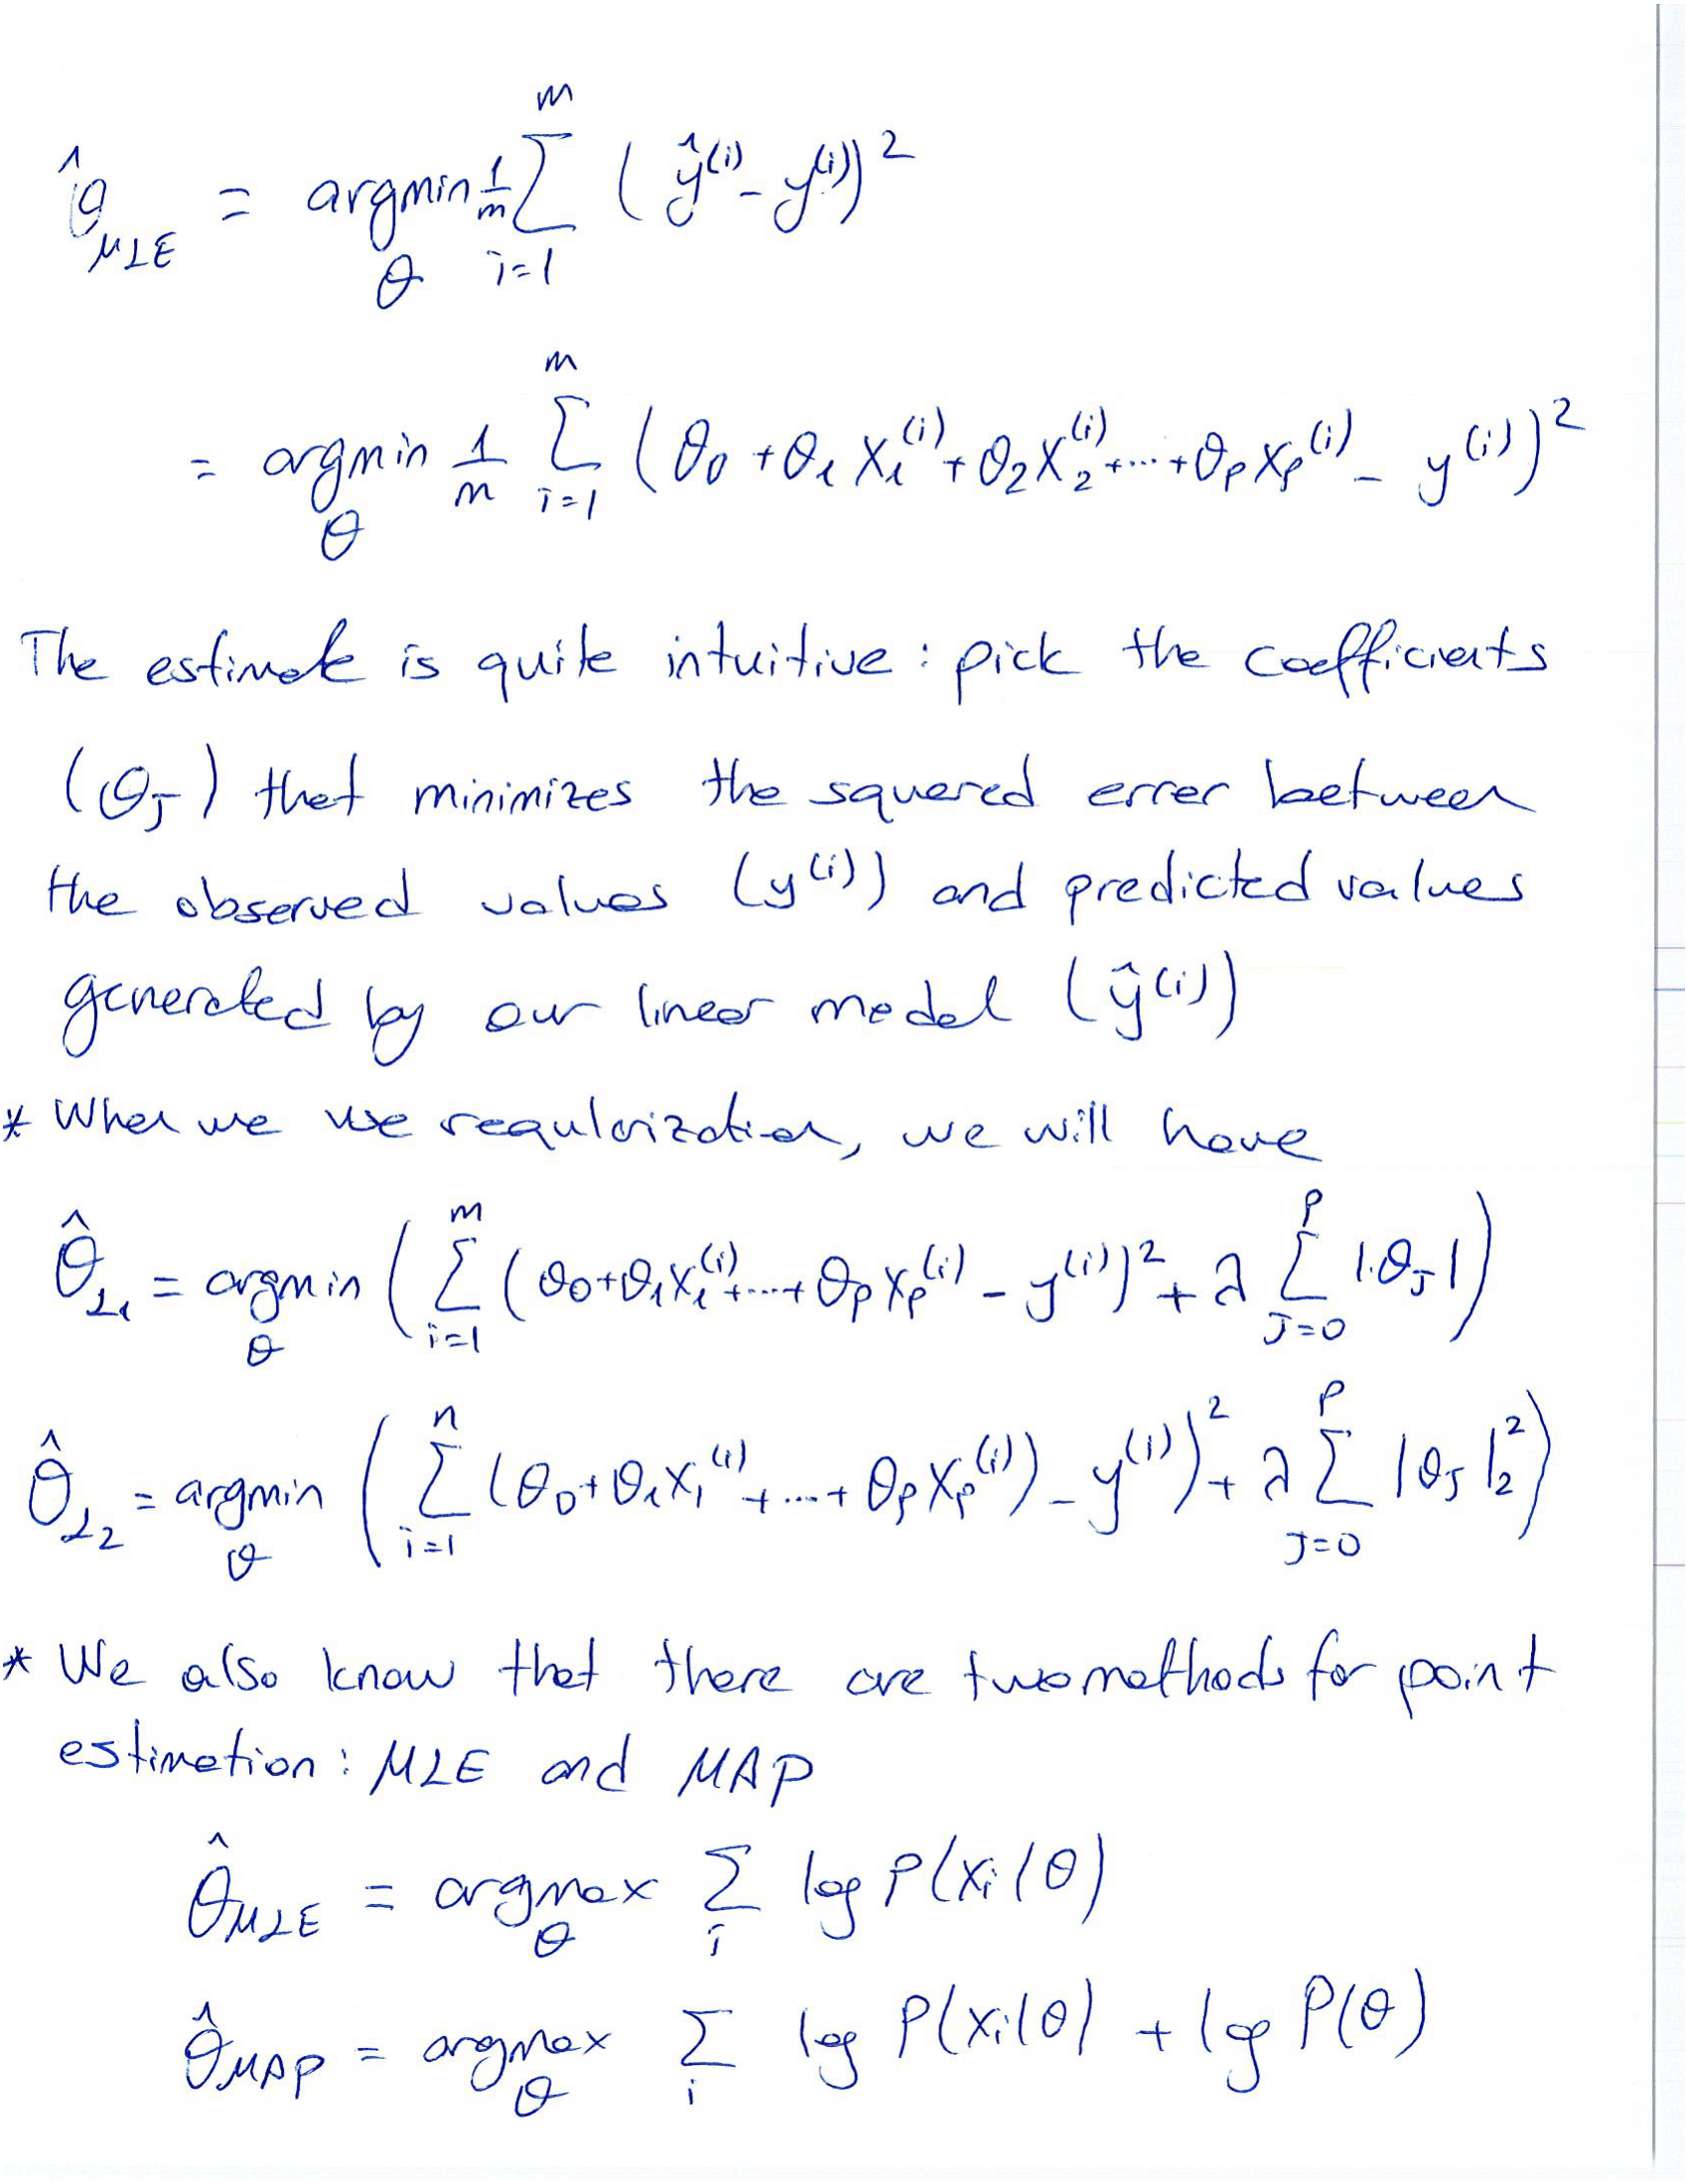 θ̂_MLE = argmin_θ 1/m Σ_{i=1}^{m} (ŷ^(i) - y^(i))^2
= argmin_θ 1/m Σ_{i=1}^{m} (θ_0 + θ_1 x_1^(i) + θ_2 x_2^(i) + ... + θ_p x_p^(i) - y^(i))^2
The estimate is quite intuitive : pick the coefficients
(θ_J) that minimizes the squared error between
the observed values (y^(i)) and predicted values
generated by our linear model (ŷ^(i))
* When we use regularization, we will have
θ̂_L1 = argmin_θ ( Σ_{i=1}^{m} (θ_0 + θ_1 x_1^(i) + ... + θ_p x_p^(i) - y^(i))^2 + λ Σ_{J=0}^{p} |θ_J| )
θ̂_L2 = argmin_θ ( Σ_{i=1}^{n} (θ_0 + θ_1 x_1^(i) + ... + θ_p x_p^(i)) - y^(i))^2 + λ Σ_{J=0}^{p} |θ_J|_2^2 )
* We also know that there are two methods for point
estimation : MLE and MAP
θ̂_MLE = argmax_θ Σ_i log P(x_i|θ)
θ̂_MAP = argmax_θ Σ_i log P(x_i|θ) + log P(θ)